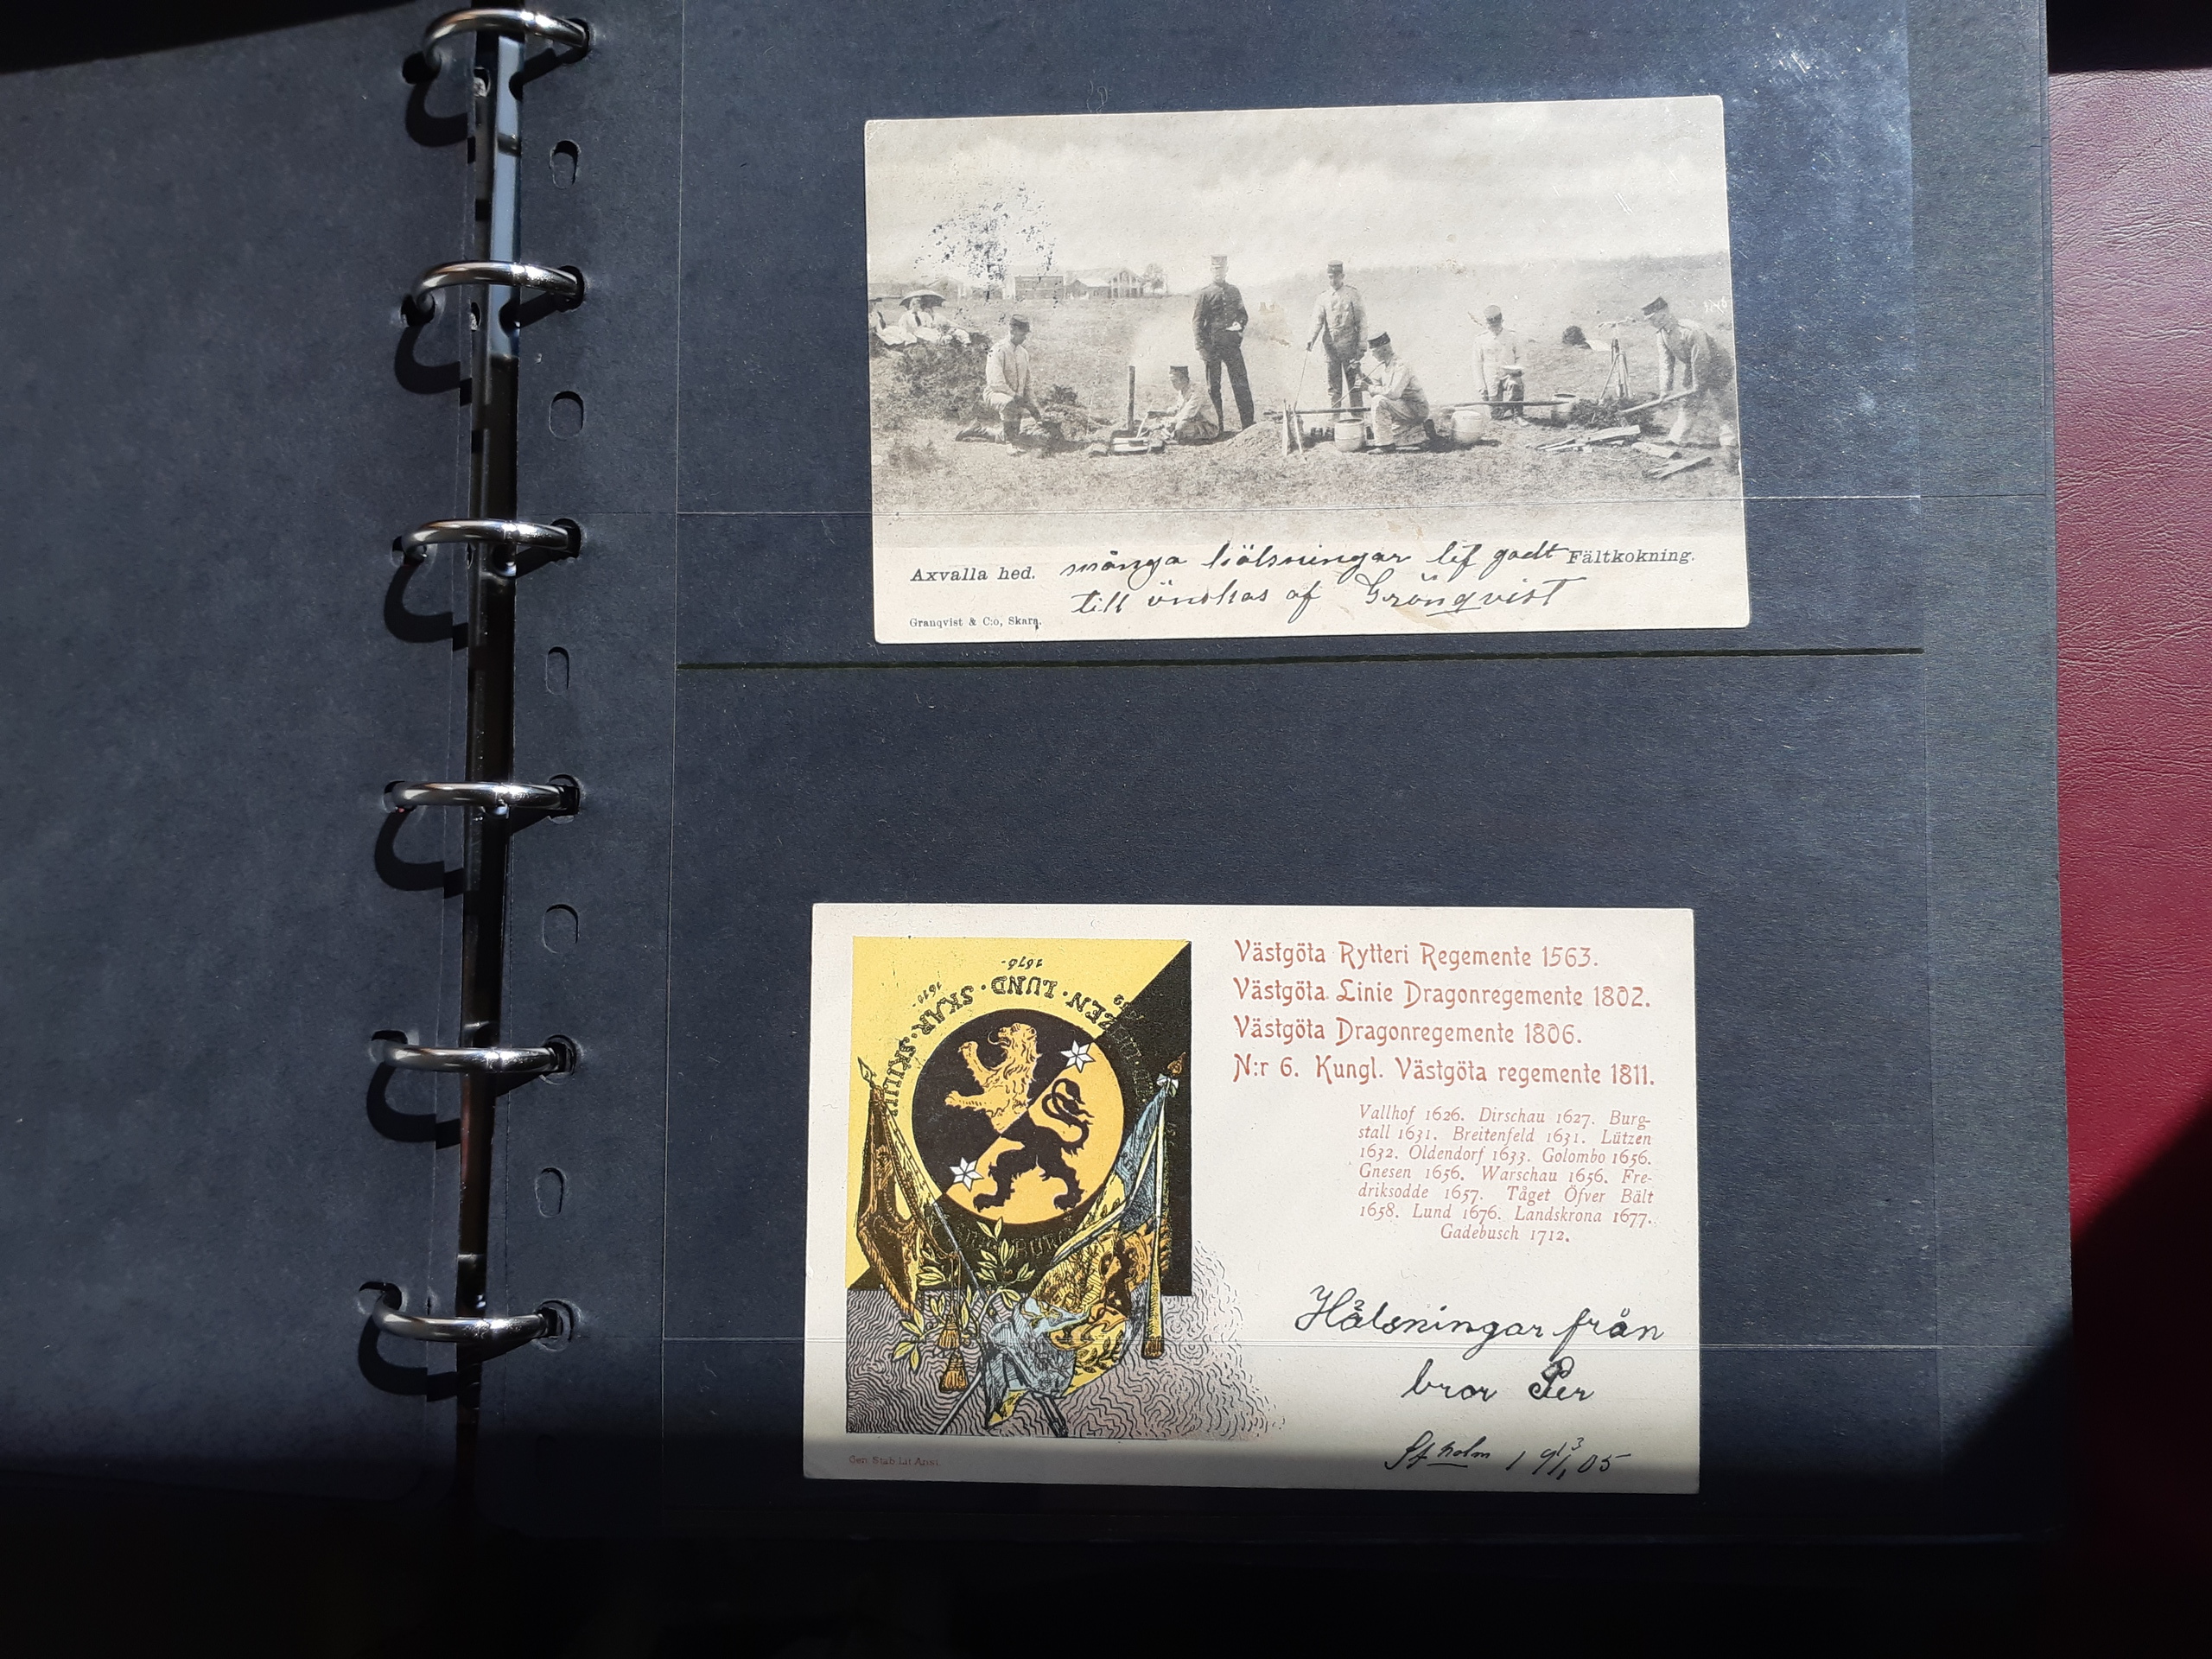 Axvalla hed.
Fältkokning.
många hälsningar lef godt
till önskas af Grönqvist
Granqvist & C:o, Skara.
SKAR · LUND ·
1676
Västgöta Rytteri Regemente 1563.
Västgöta Linie Dragonregemente 1802.
Västgöta Dragonregemente 1806.
N:r 6. Kungl. Västgöta regemente 1811.
Vallhof 1626. Dirschau 1627. Burg-
stall 1631. Breitenfeld 1631. Lützen
1632. Oldendorf 1633. Golombo 1656.
Gnesen 1656. Warschau 1656. Fre-
driksodde 1657. Tåget Öfver Bält
1658. Lund 1676. Landskrona 1677.
Gadebusch 1712.
Hälsningar från
bror Per
Stholm
Gen. Stab. Lit. Anst.